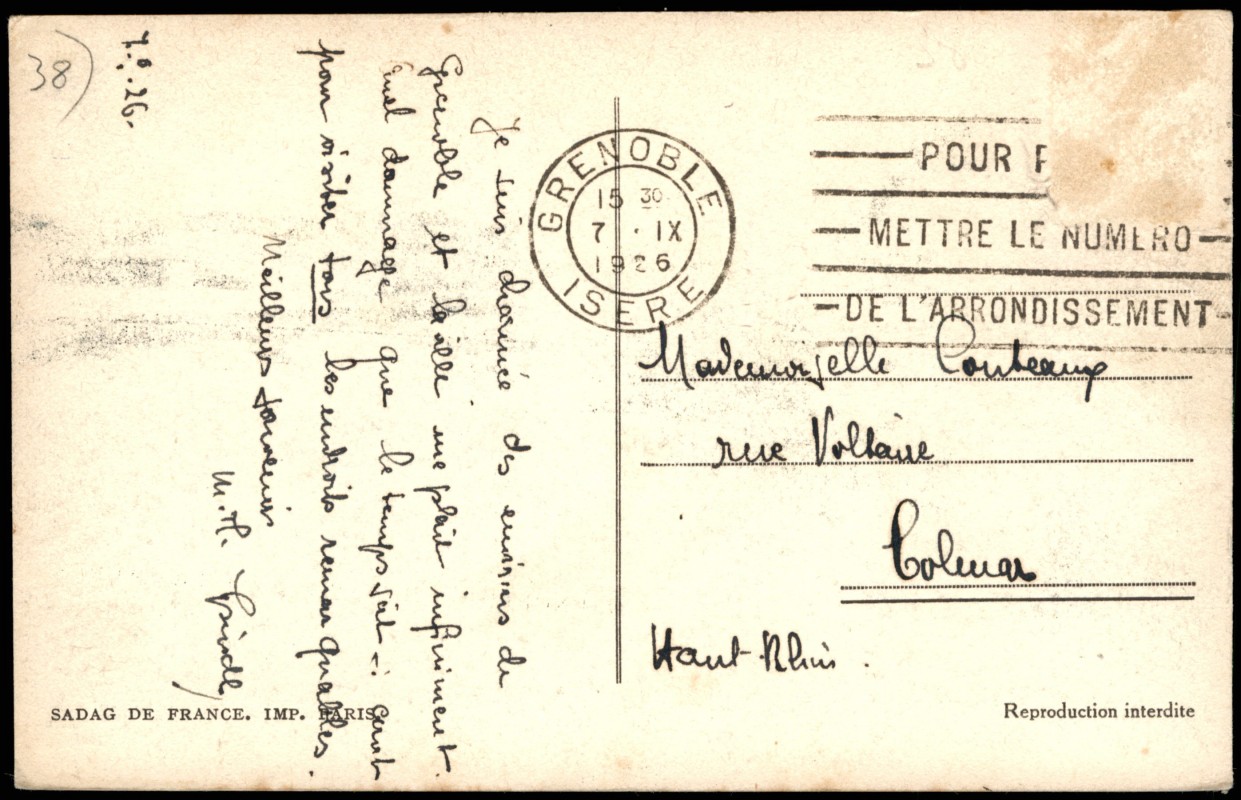 38)
7.9.26.
Je suis charmée des environs de
Grenoble et la ville me plait infiniment.
Quel dommage que le temps soit si court
pour visiter tous les endroits remarquables.
Meilleurs souvenirs
M.Th.
GRENOBLE
15 30
7 . IX
1926
ISERE
POUR P
METTRE LE NUMERO
DE L'ARRONDISSEMENT
Mademoiselle
rue Voltaire
Colmar
Haut-Rhin.
SADAG DE FRANCE. IMP. PARIS.
Reproduction interdite